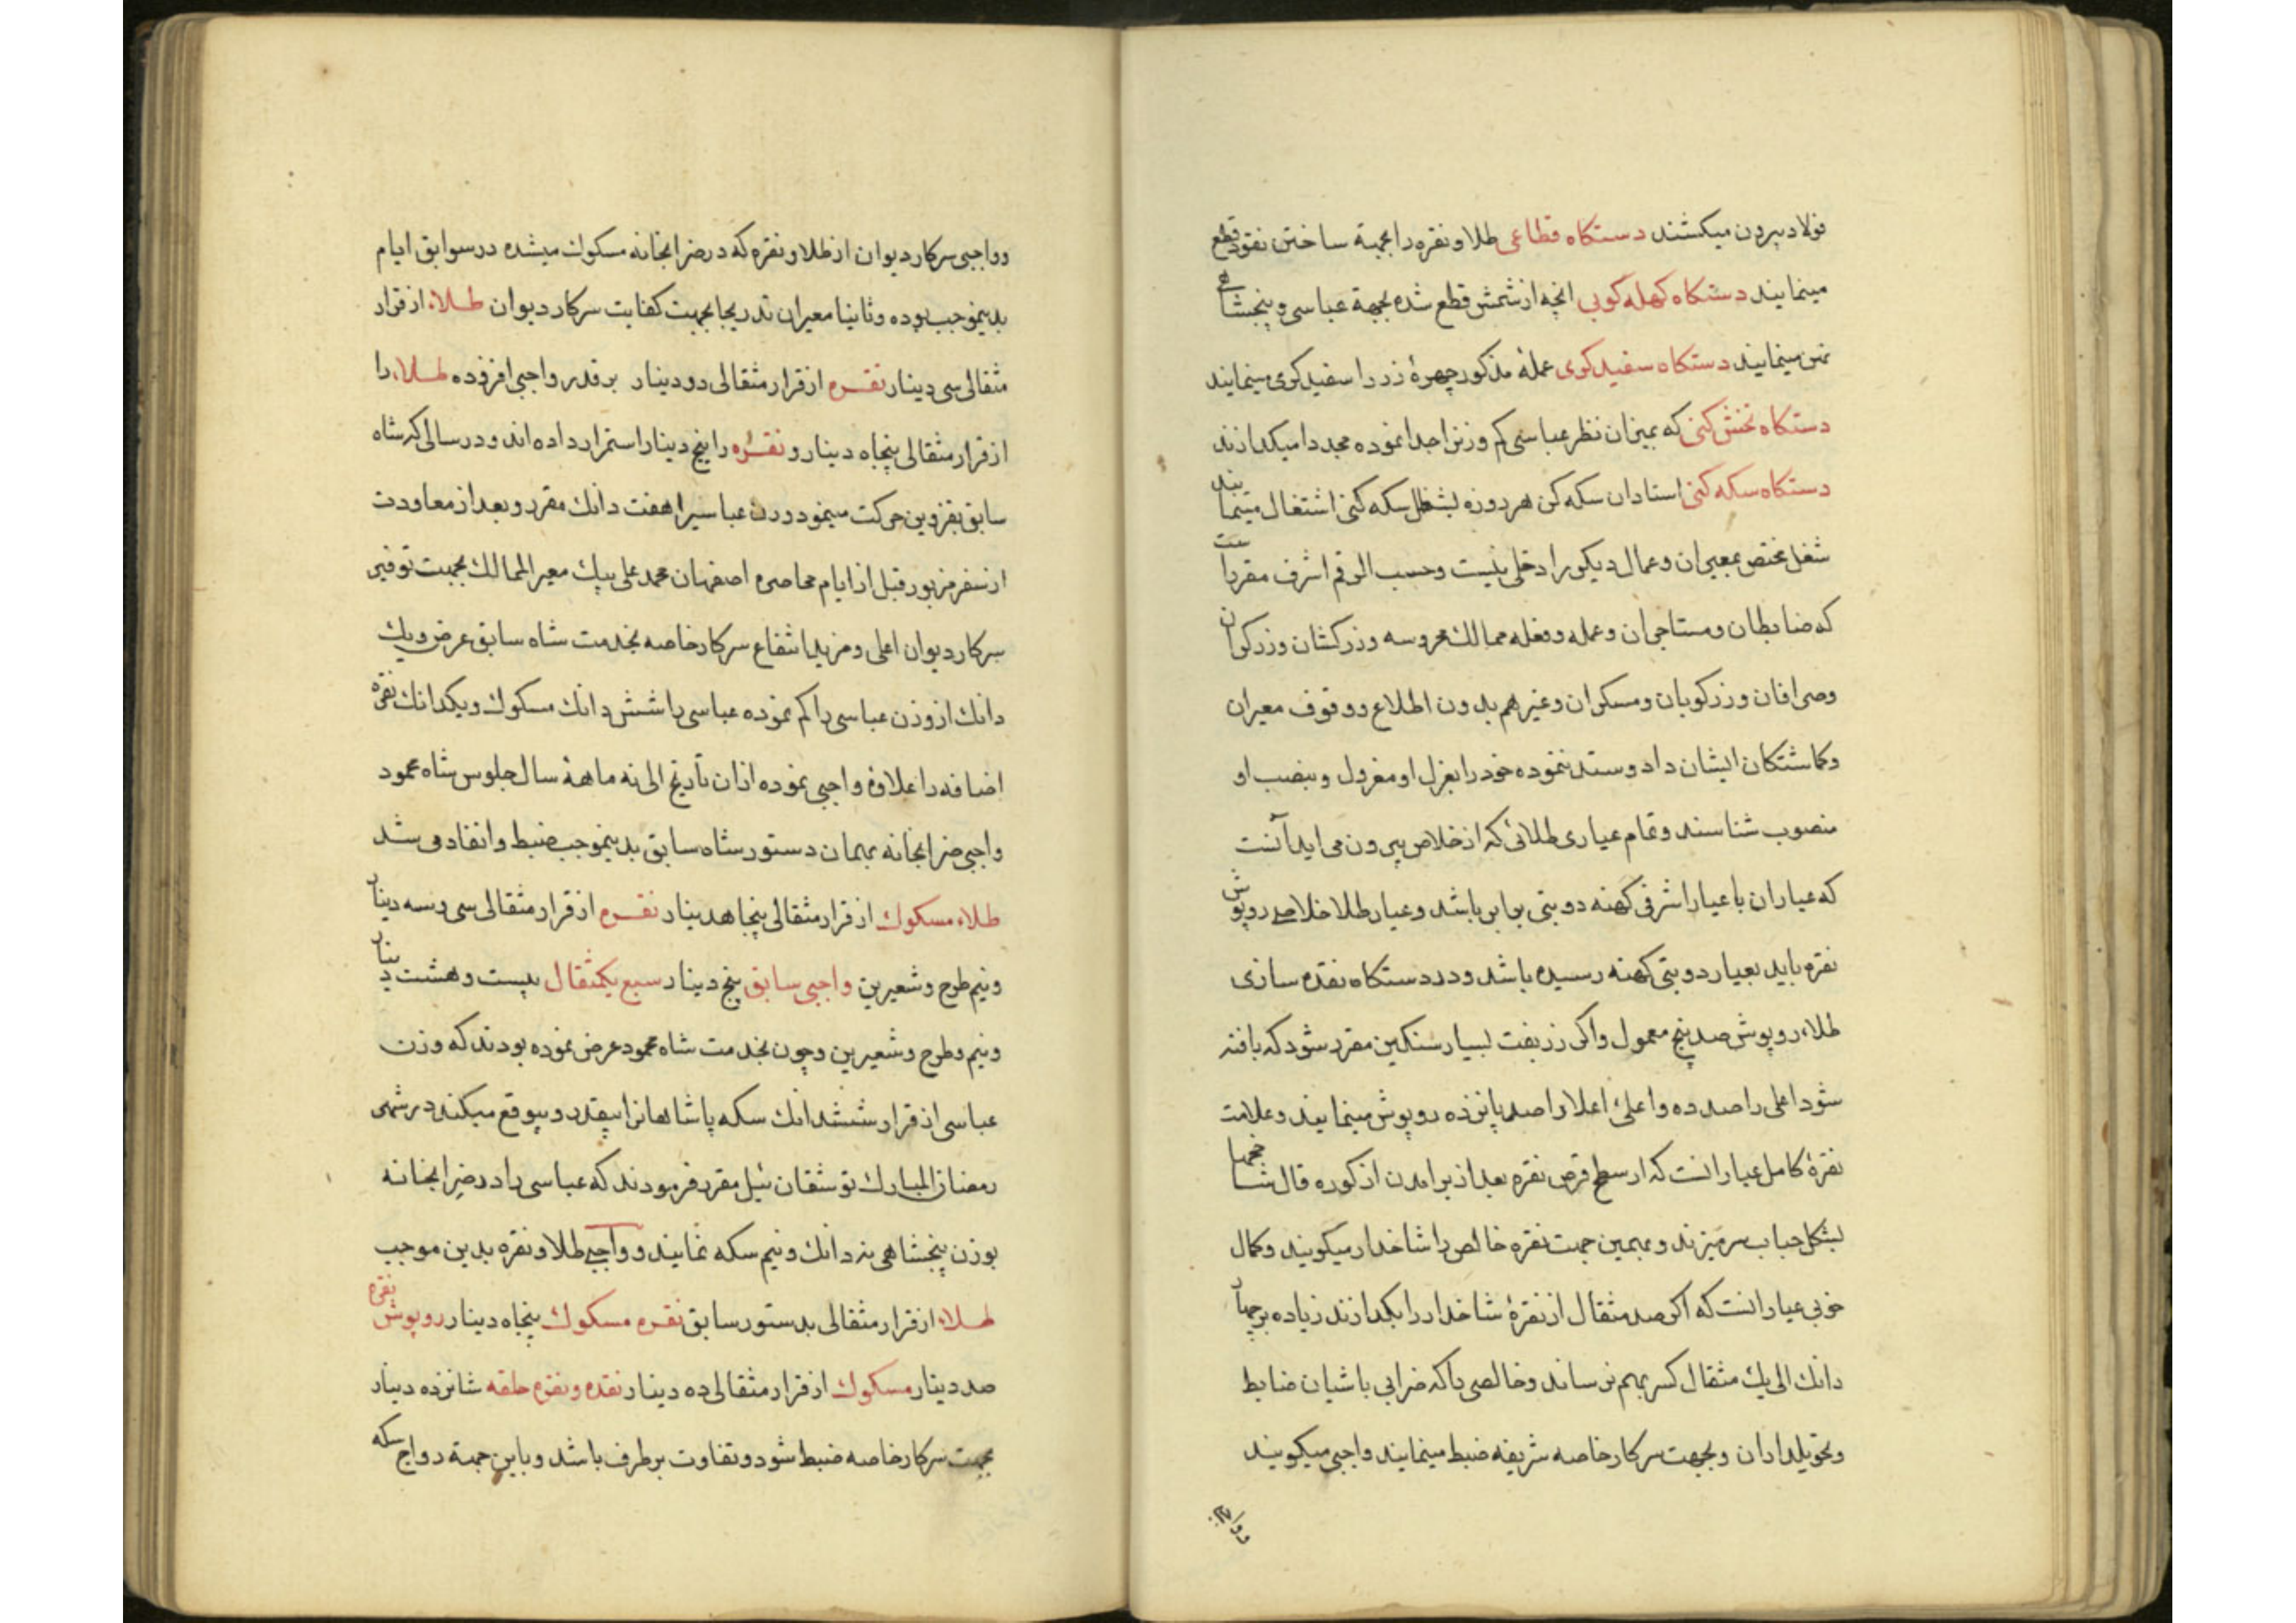 فولاد بیرون میکشند دستکاه قطاعی طلا و نقره را بجهة ساختن نقود قطع
مینمایند دستکاه کهله کوبی انچه از شمش قطع شده بجهة عباسی و پنجشاهی
پهن مینمایند دستکاه سفید کری عملۀ مذکور چهرۀ زر را سفید کری مینمایند
دستکاه تخش کنی که بمیزان نظر عباسی کم وزنرا جدا نموده مجددا میکدازند
دستکاه سکه کنی استادان سکه کن هر روزه بشغل سکه کنی اشتغال مینمایند
شغل مختص بمعیران و عمال دیکر را دخلی نیست و حسب الرقم اشرف مقرر است
که ضابطان و مستاجران و عمله و فعله ممالک محروسه و زرکشان و زرکران
و صرافان و زرکوبان و مسکران و غیرهم بدون اطلاع و وقوف معیران
و کماشتکان ایشان داد و ستد ننموده خود را بعزل او معزول و بنصب او
منصوب شناسند و تمام عیاری طلائی که از خلاص بیرون می اید آنست
که عیار ان با عیار اشرفی کهنه دو بتی برابر باشد و عیار طلا خلاصی روپوش
نقره باید بعیار دو بتی کهنه رسیده باشد و در دستکاه نقده سازی
طلاء روپوش صد پنج معمول و اکر زربفت بسیار سنکین مقرر شود که بافته
شود اعلی را صد ده و اعلیٰ اعلا را صد پانزده روپوش مینمایند و علامت
نقرۀ کامل عیار انست که از سطح قرص نقره بعد از برامدن از کوره قال شاخچها
بشکل حباب سر میزند و بهمین جهت نقره خالص را شاخدار میکویند و کمال
خوبی عیار انست که اکر صد مثقال از نقرۀ شاخدار را بکدازند زیاده بر چهار
دانک الی یک مثقال کسر بهم نرساند و خالصی را که ضرابی باشیان ضابط
و تحویلداران و بجهت سرکار خاصه شریفه ضبط مینمایند واجبی میکویند
و واجبی
و واجبی سرکار دیوان از طلا و نقره که در ضرابخانه مسکوک میشده در سوابق ایام
بدینموجب بوده و ثانیا معیران تدریجا بجهت کفایت سرکار دیوان طلاء از قرار
مثقالی سی دینار نقره از قرار مثقالی دو دینار بر قدر واجبی افزوده طلاء را
از قرار مثقالی پنجاه دینار و نقره را پنج دینار استمرار داده اند و در سالی که شاه
سابق بقزوین حرکت مینمود وزن عباسیرا هفت دانک مقرر و بعد از معاودت
از سفر مزبور قبل از ایام محاصره اصفهان محمد علی بیک معیر الممالک بجهت توفیر
سرکار دیوان اعلی و مزید انتفاع سرکار خاصه بخدمت شاه سابق عرض و یک
دانک از وزن عباسی را کم نموده عباسی را شش دانک مسکوک و یکدانک نقره
اضافه را علاوۀ واجبی نموده از ان تاریخ الی نه ماهۀ سال جلوس شاه محمود
واجبی ضرابخانه بهمان دستور شاه سابق بدینموجب ضبط و انفاد می شد
طلاء مسکوک از قرار مثقالی پنجاه دینار نقره از قرار مثقالی سی و سه دینار
و نیم طرح و شعیرین واجبی سابق پنج دینار سبع یکمثقال بیست و هشت دینار
و نیم و طرح و شعیرین و چون بخدمت شاه محمود عرض نموده بودند که وزن
عباسی از قرار ششدانک سکه پاشاهانرا بیقدر و بیوقع میکند در شهر
رمضان المبارک توشقان ئیل مقرر فرمودند که عباسی را در ضرابخانه
بوزن پنجشاهی نه دانک و نیم سکه نمایند و واجبی طلا و نقره بدین موجب
طلاء از قرار مثقالی بدستور سابق نقره مسکوک پنجاه دینار روپوش نقره
صد دینار مسکوک از قرار مثقالی ده دینار نقده و نقره حلقه شانزده دینار
بجهت سرکار خاصه ضبط شود و تفاوت بر طرف باشد و باین جهة رواج سکه